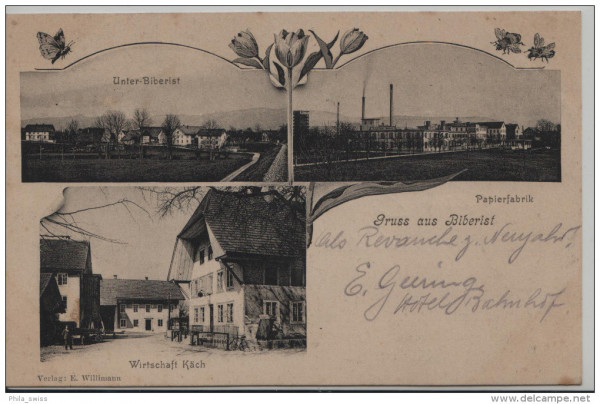 Unter-Biberist
Papierfabrik
Gruss aus Biberist
Als Revanche z. Neujahr!
E. Geering
Hotel Bahnhof
Wirtschaft Käch
Verlag: E. Willimann
Phila_swiss